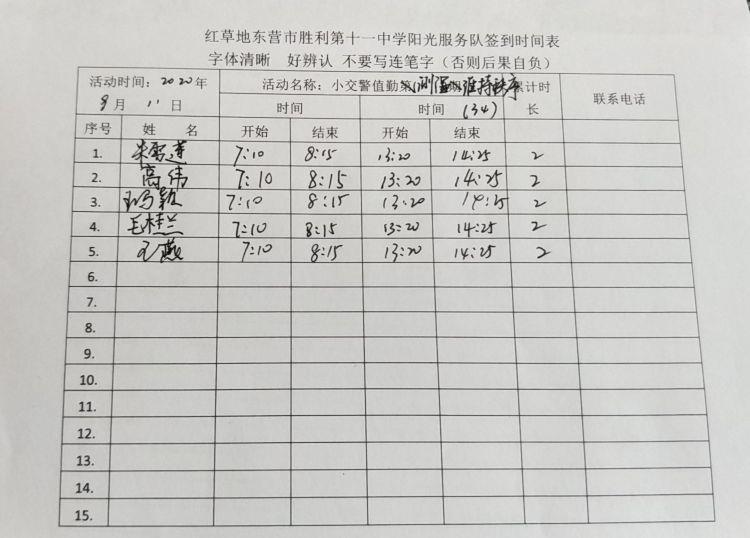 红草地东营市胜利第十一中学阳光服务队签到时间表
字体清晰 好辨认 不要写连笔字（否则后果自负）
活动时间：2020年
9月11日
活动名称：小交警值勤第 测温 维持秩序 累计时长
(34)
联系电话
时间 时间
序号 姓名 开始 结束 开始 结束
1. 朱雪莲 7:10 8:15 13:20 14:25 2
2. 高伟 7:10 8:15 13:20 14:25 2
3. 颖 7:10 8:15 13:20 14:25 2
4. 毛桂兰 7:10 8:15 13:20 14:25 2
5. 王燕 7:10 8:15 13:20 14:25 2
6.
7.
8.
9.
10.
11.
12.
13.
14.
15.